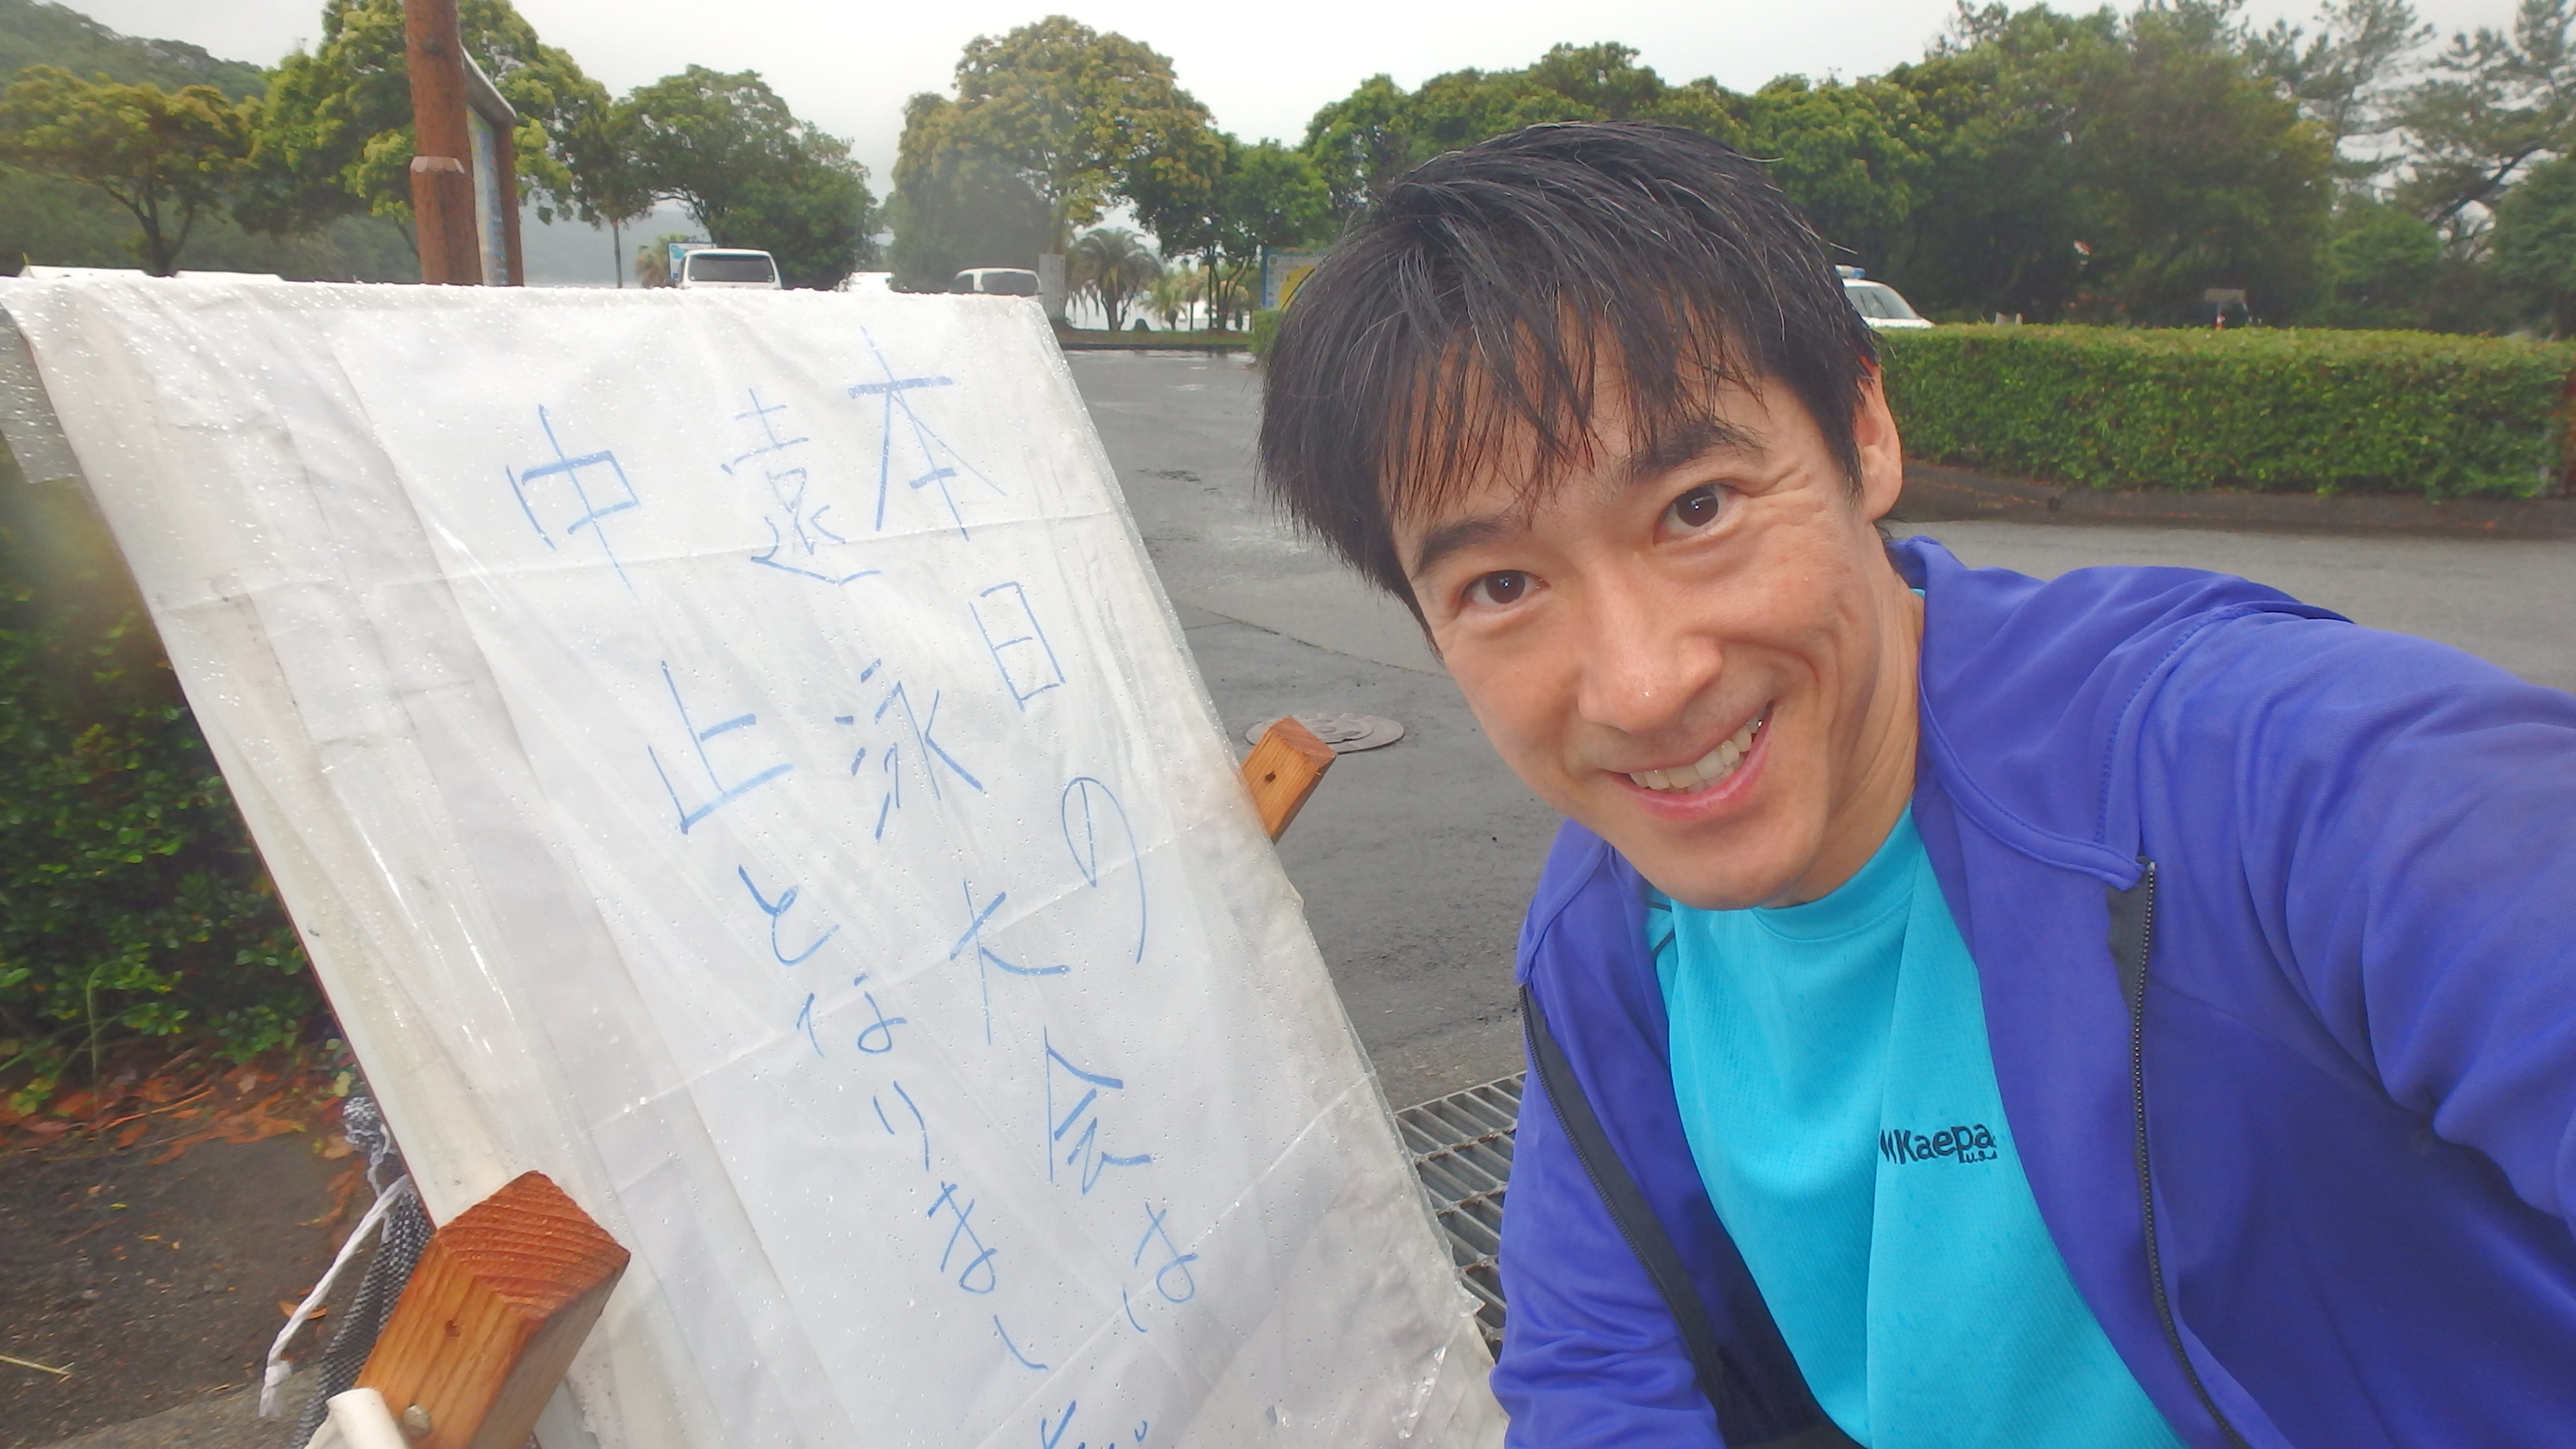 本日の大会は
遠泳大会は
中止となりました
Kaepa
U.S.A